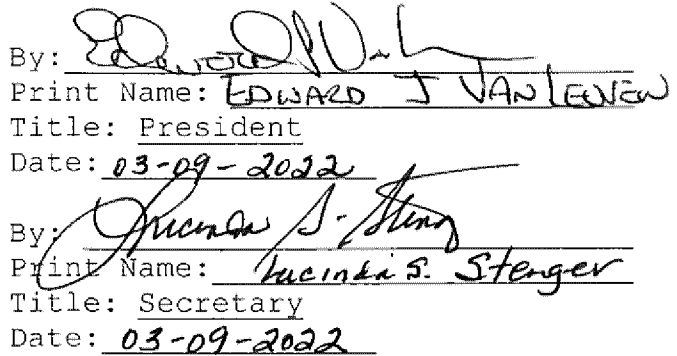 By: Edward J Van L
Print Name: EDWARD J VAN LEUVEN
Title: President
Date: 03-09-2022
By: Lucinda S. Steng
Print Name: Lucinda S. Stenger
Title: Secretary
Date: 03-09-2022